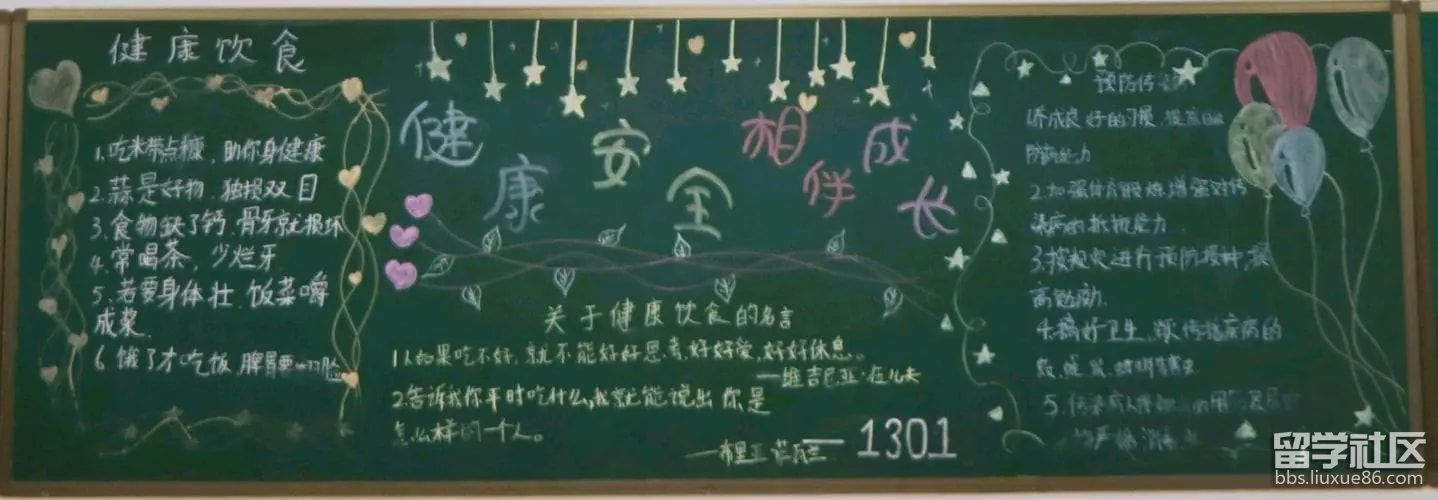 健康饮食
1.吃米带点糠，助你身健康
2.蒜是好物，独损双目
3.食物缺了钙，骨牙就损坏
4.常喝茶，少烂牙
5.若要身体壮，饭菜嚼
成浆.
6.饿了才吃饭，脾胃
健康安全相伴成长
关于健康饮食的名言
1.人如果吃不好，就不能好好思考，好好爱，好好休息。
——维吉尼亚·伍尔夫
2.告诉我你平时吃什么，我就能说出你是
怎么样的一个人。
1301
预防传
1.养成良好的习惯，提高自
防病能力
2.加强体育锻炼，增强对传
染病的抵抗能力.
3.按规定进行预防接种，提
高免疫力.
4.搞好卫生，
5.传染病人
留学社区
bbs.liuxue86.com